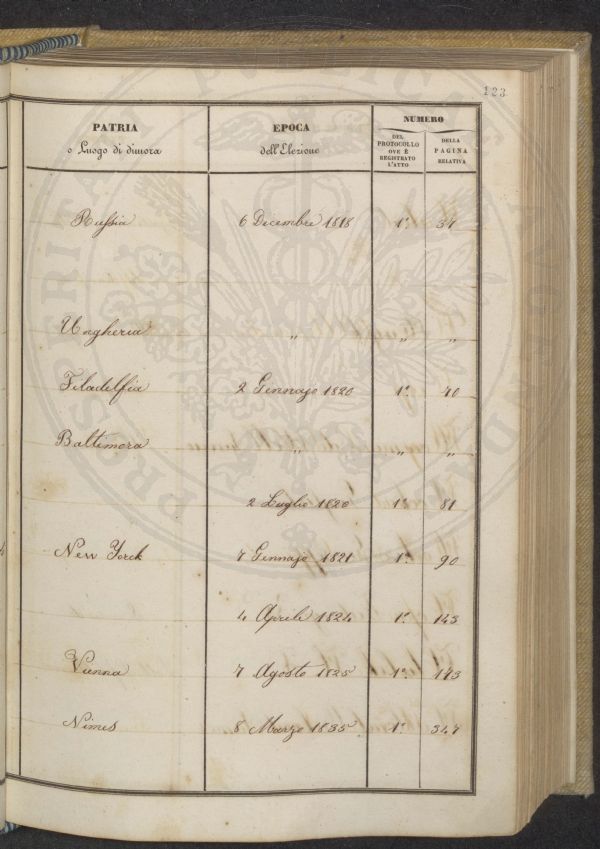 123
PATRIA
o Luogo di dimora
EPOCA
dell'Elezione
NUMERO
DEL
PROTOCOLLO
OVE È
REGISTRATO
L'ATTO
DELLA
PAGINA
RELATIVA
Russia 6 Decembre 1818 1.° 34
Ungheria " " "
Filadelfia 2 Gennajo 1820 1.° 70
Baltimora " " "
2 Luglio 1820 1.° 81
New Yorck 7 Gennajo 1821 1.° 90
4 Aprile 1824 1.° 143
Vienna 7 Agosto 1825 1.° 173
Nimes 8 Marzo 1835 1.° 347